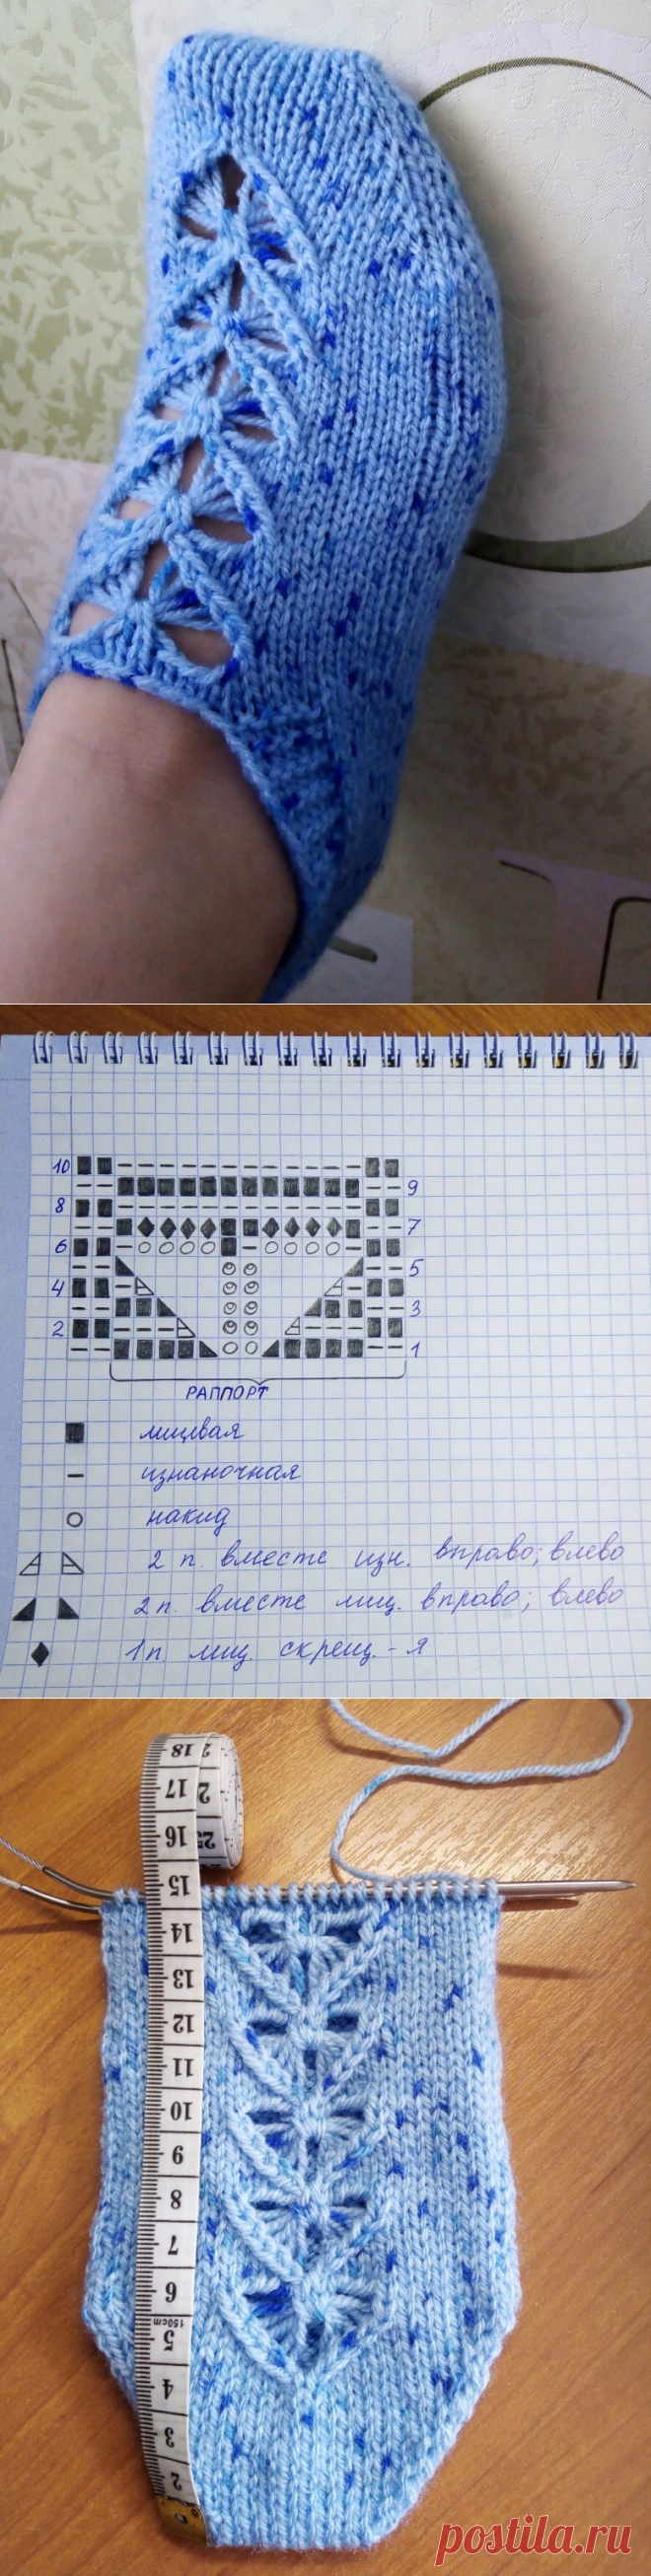 10
9
8
7
6
5
4
3
2
1
РАППОРТ
лицевая
изнаночная
накид
2 п. вместе изн. вправо; влево
2 п. вместе лиц. вправо; влево
1 п. лиц. скрещ.-я
18
17
16
15
14
13
12
11
10
9
8
7
6
150cm
5
4
3
2
postila.ru